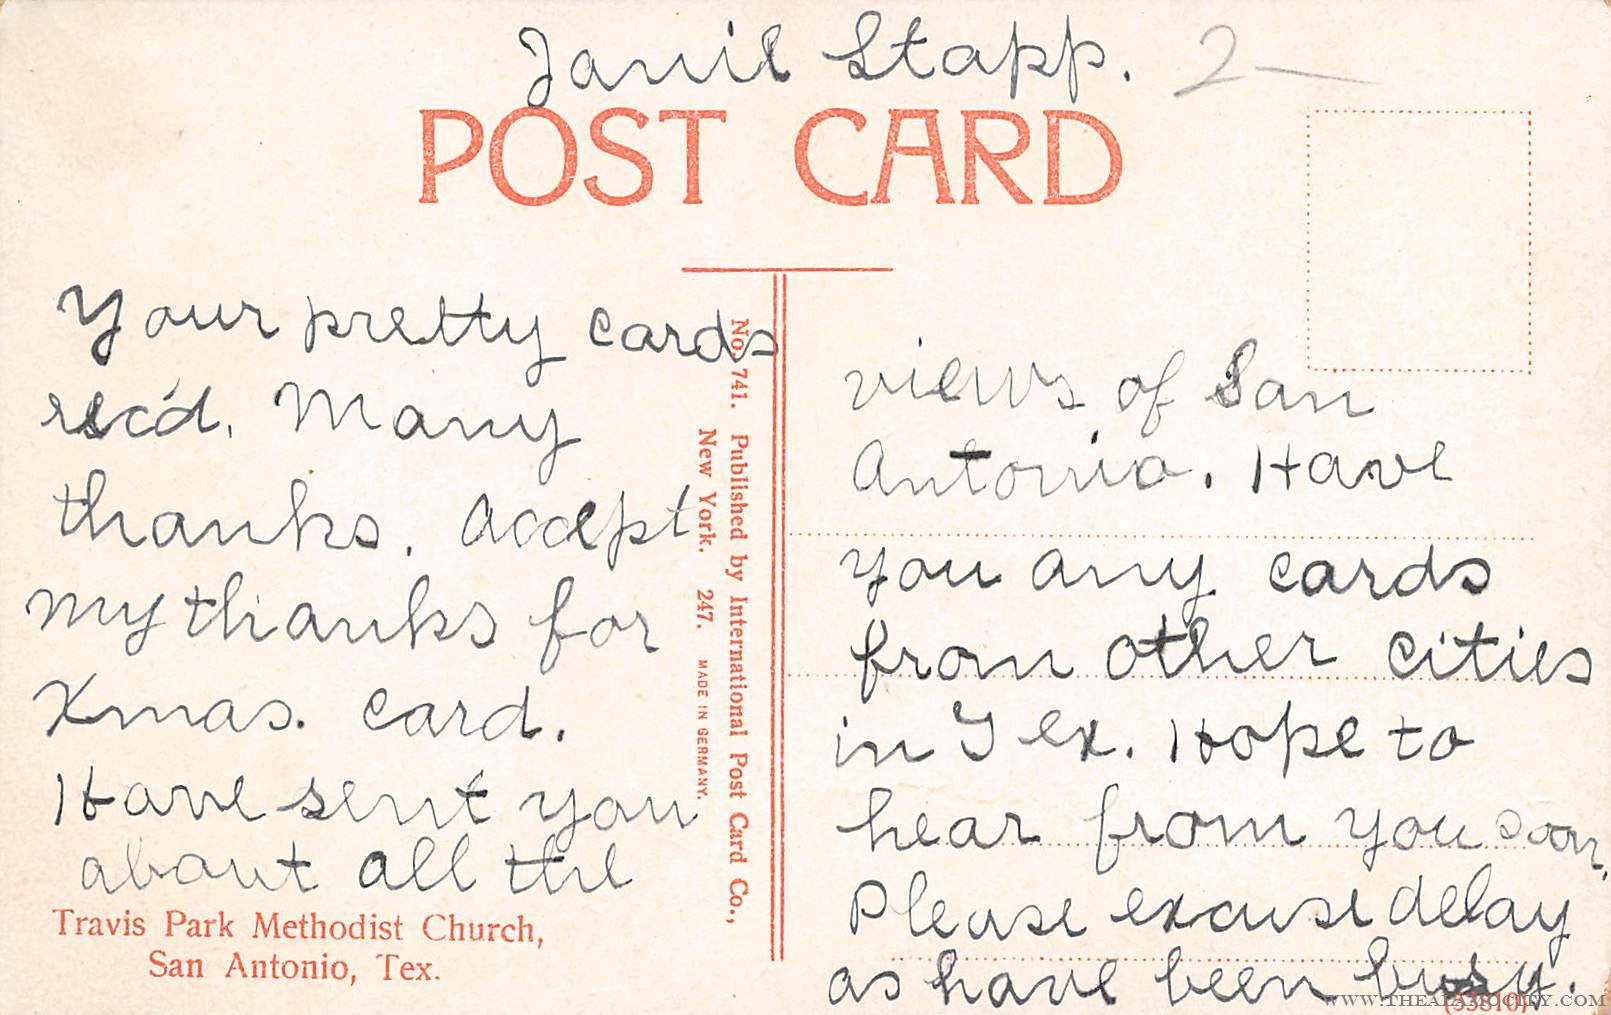 Janie Stapp. 2—
POST CARD
Your pretty cards
rec'd. Many
thanks. Accept
my thanks for
Xmas. card.
Have sent you
about all the
Travis Park Methodist Church,
San Antonio, Tex.
No. 741. Published by International Post Card Co.,
New York. 247. MADE IN GERMANY.
views of San
Antonio. Have
you any cards
from other cities
in Tex. Hope to
hear from you soon.
Please excuse delay
as have been busy.
WWW.THEALAMOCITY.COM